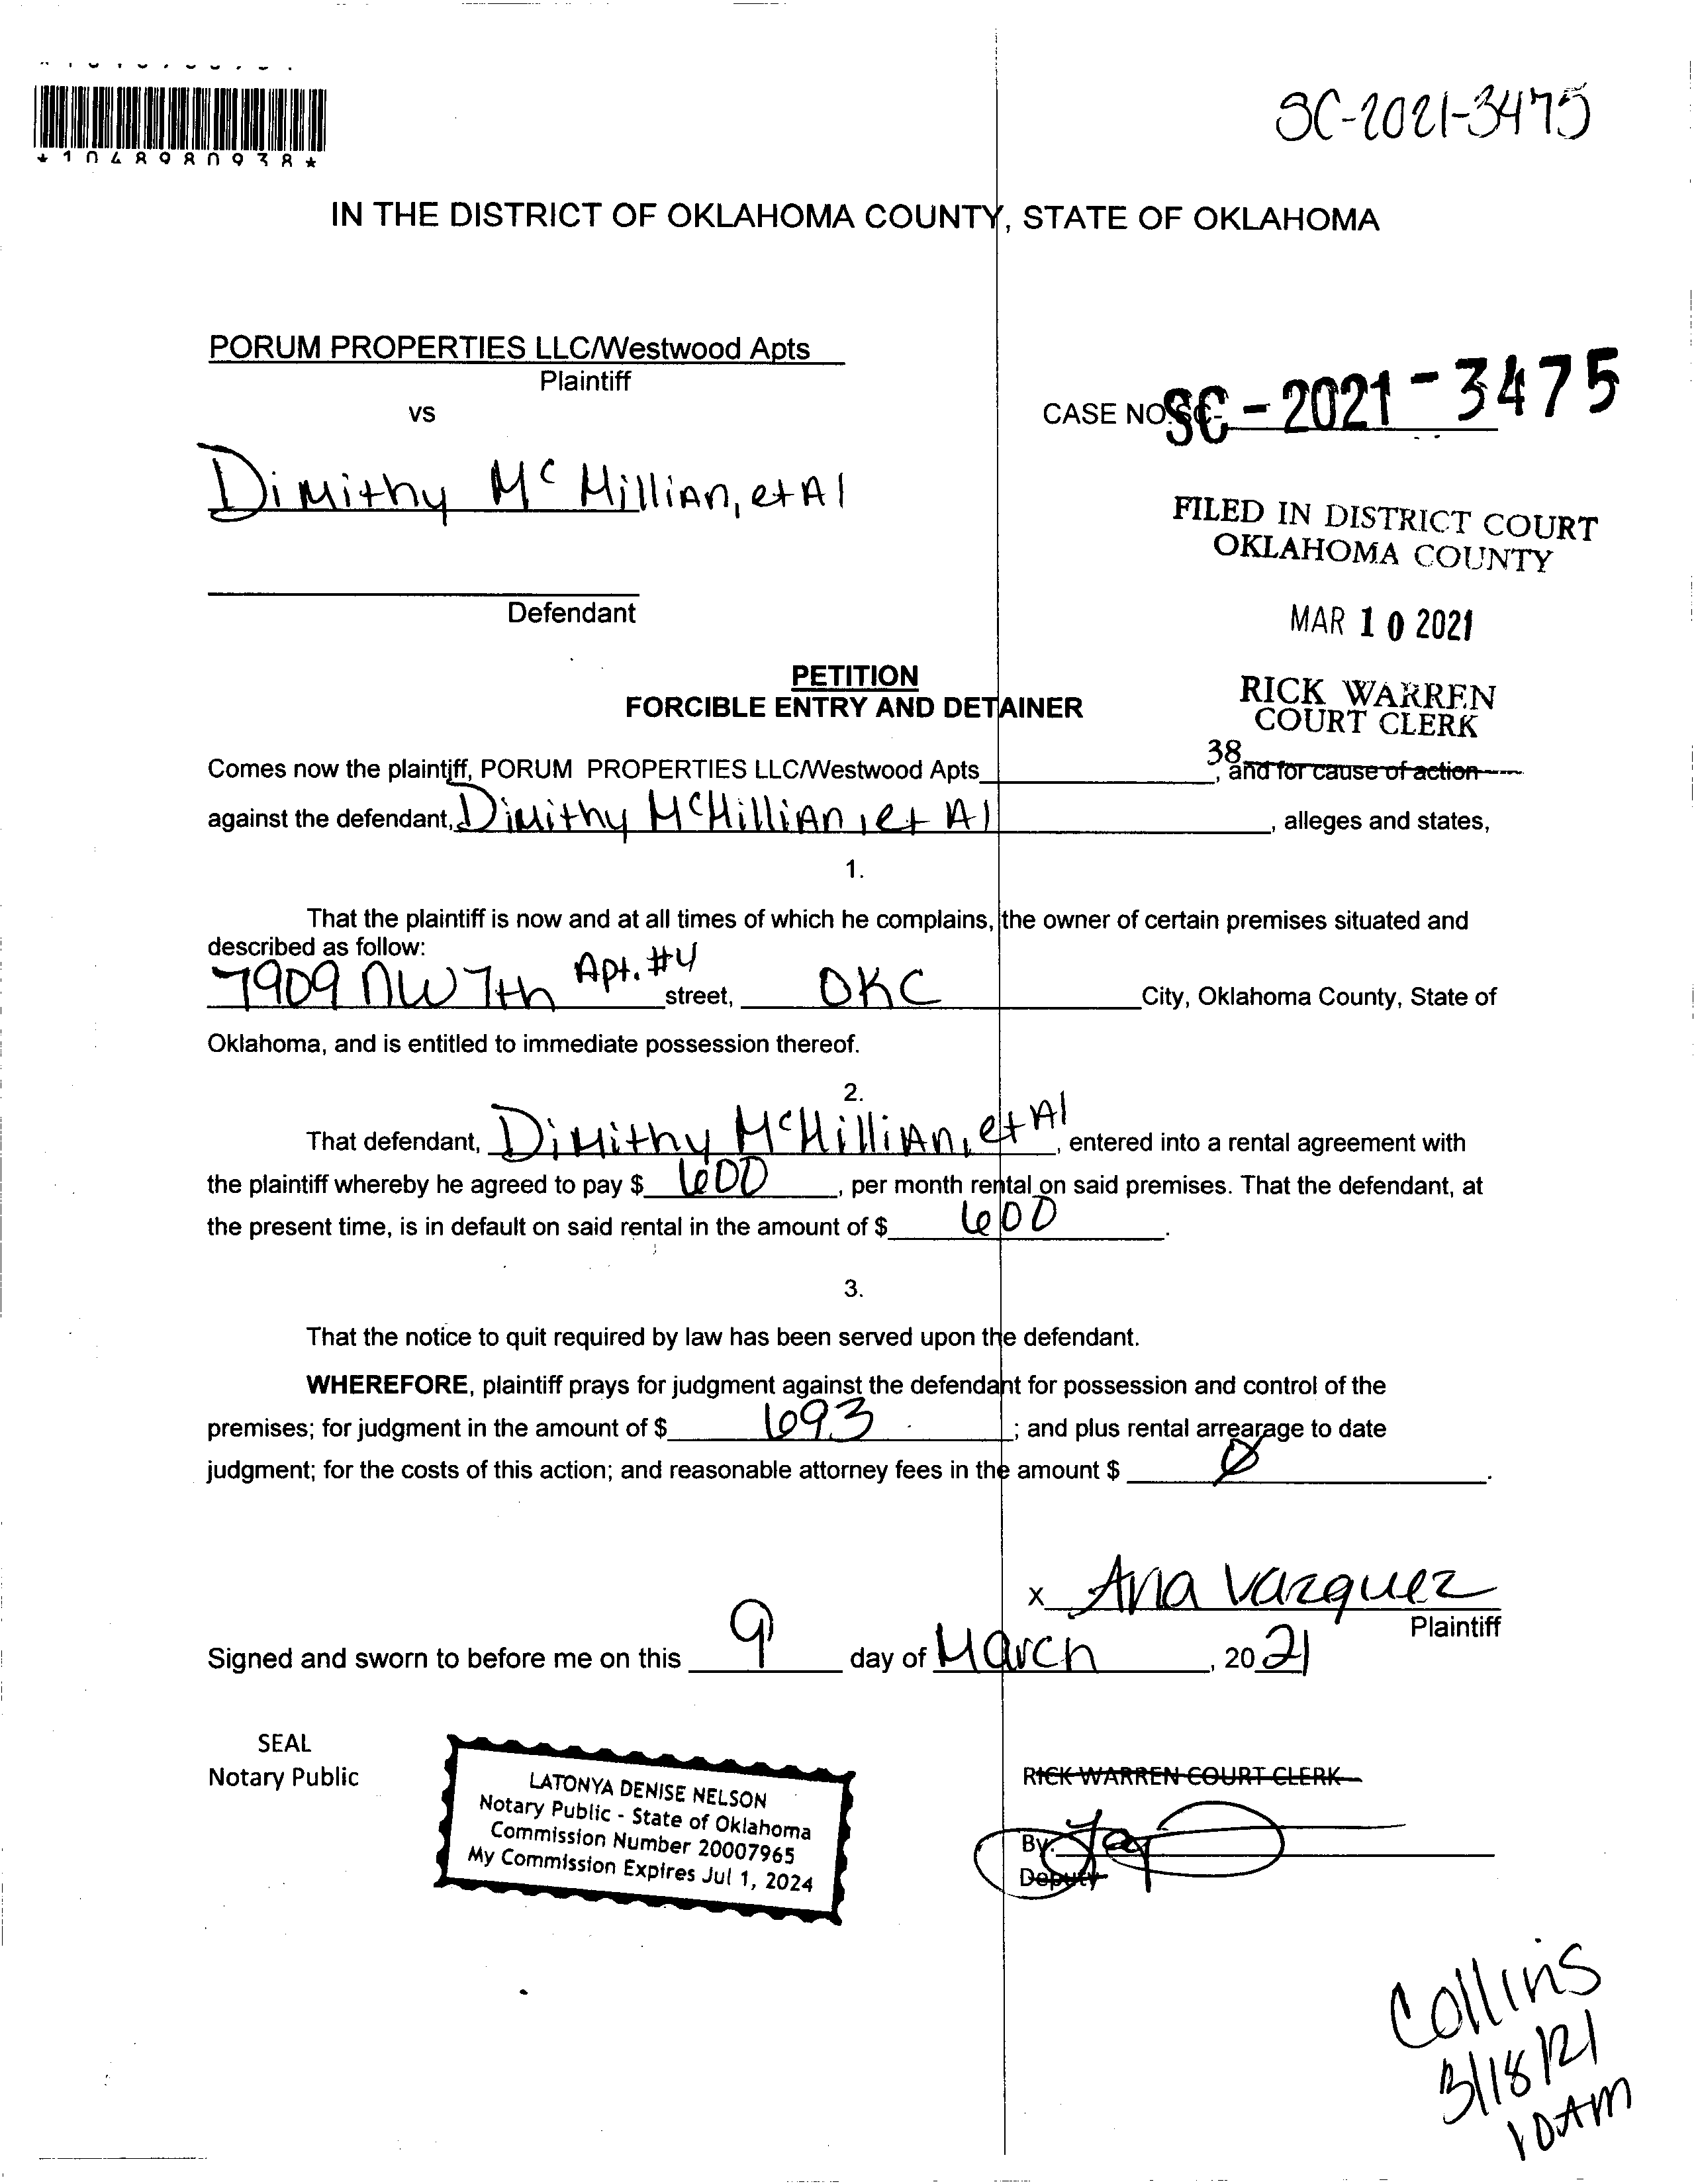 SC-2021-3475
*1048980938*
IN THE DISTRICT OF OKLAHOMA COUNTY, STATE OF OKLAHOMA
PORUM PROPERTIES LLC/Westwood Apts
Plaintiff
vs
CASE NO. SC-2021-3475
Dimithy McMillian, et Al
FILED IN DISTRICT COURT
OKLAHOMA COUNTY
Defendant
MAR 10 2021
PETITION
FORCIBLE ENTRY AND DETAINER
RICK WARREN
COURT CLERK
38
Comes now the plaintiff, PORUM PROPERTIES LLC/Westwood Apts, and for cause of action
against the defendant, Dimithy McMillian, et Al, alleges and states,
1.
That the plaintiff is now and at all times of which he complains, the owner of certain premises situated and
described as follow:
7909 NW 7th Apt. #4 street, OKC City, Oklahoma County, State of
Oklahoma, and is entitled to immediate possession thereof.
2.
That defendant, Dimithy McMillian, et Al, entered into a rental agreement with
the plaintiff whereby he agreed to pay $ 600, per month rental on said premises. That the defendant, at
the present time, is in default on said rental in the amount of $ 600.
3.
That the notice to quit required by law has been served upon the defendant.
WHEREFORE, plaintiff prays for judgment against the defendant for possession and control of the
premises; for judgment in the amount of $ 693; and plus rental arrearage to date
judgment; for the costs of this action; and reasonable attorney fees in the amount $ Ø.
x Ana Vazquez
Plaintiff
Signed and sworn to before me on this 9 day of March, 2021
SEAL
Notary Public
LATONYA DENISE NELSON
Notary Public - State of Oklahoma
Commission Number 20007965
My Commission Expires Jul 1, 2024
RICK WARREN COURT CLERK
By:
Deputy
Collins
3/18/21
10AM